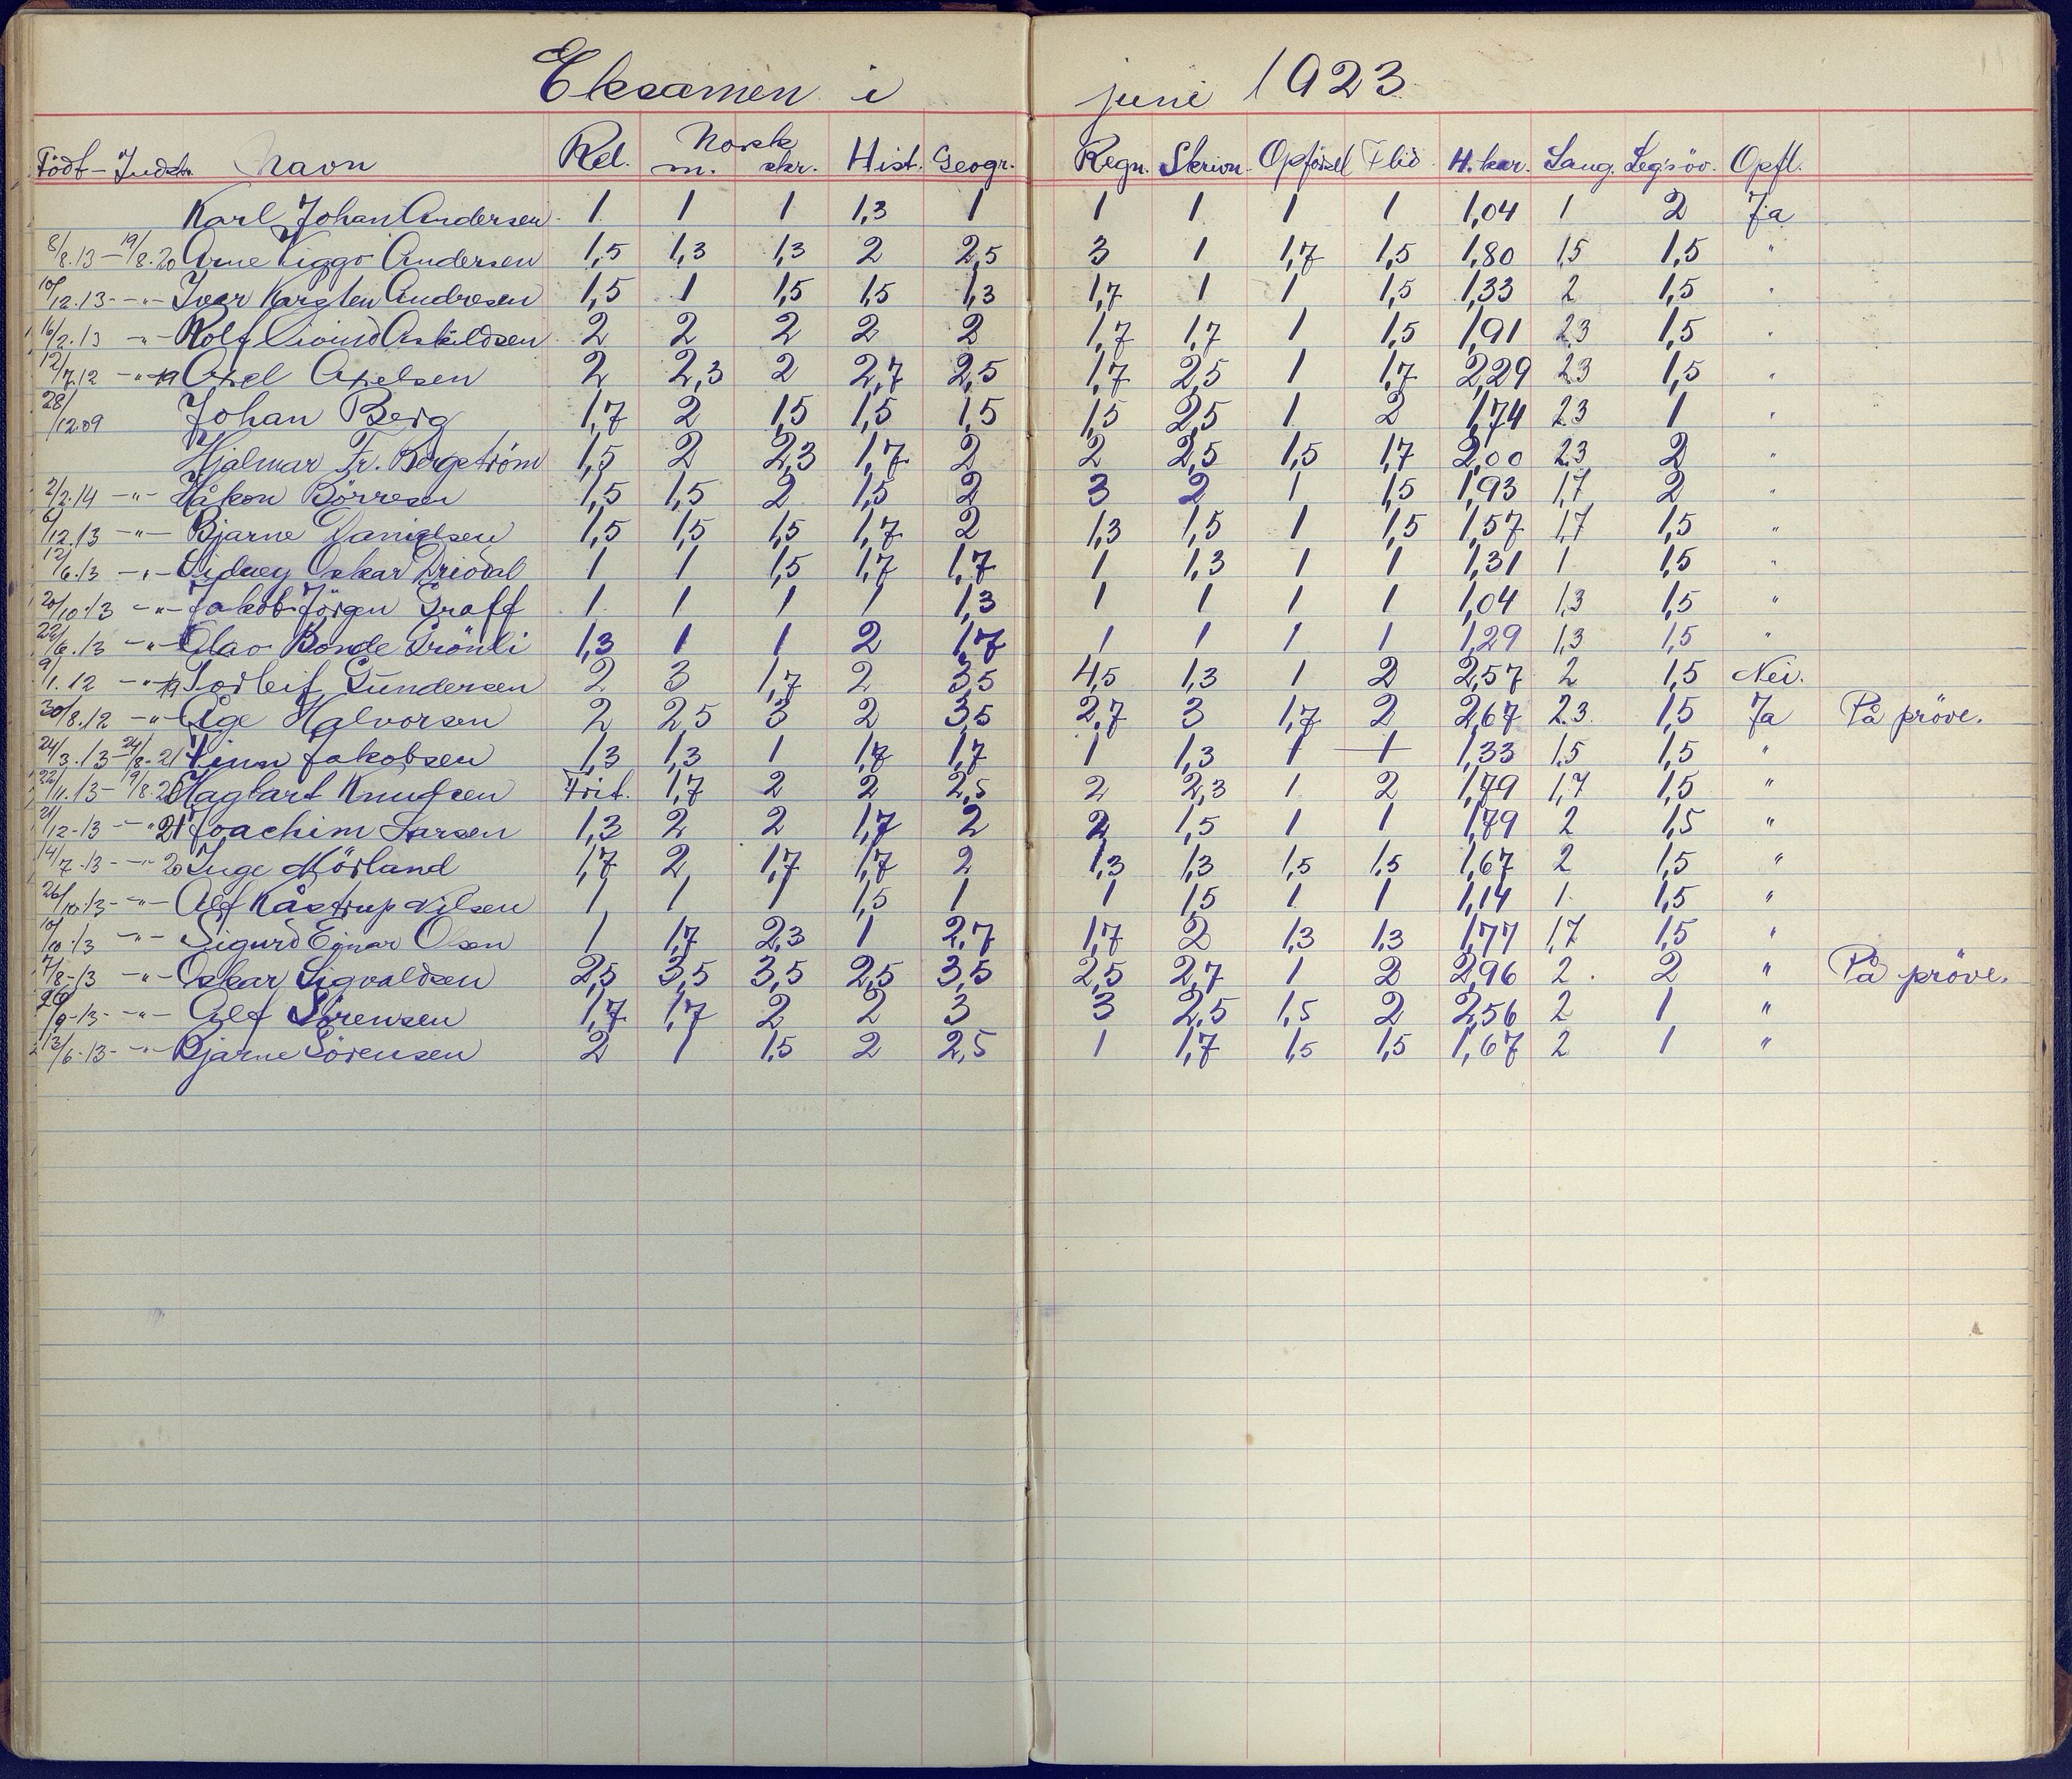 Eksamen i juni 1923
Född - Indskr. Navn Rel. Norsk m. skr. Hist. Geogr. Regn. Skrivn. Opförsel Flid H. kar. Sang. Leg.söv. Opfl.
Karl Johan Andersen 1 1 1 1,3 1 1 1 1 1 1,04 1 2 Ja
8/8.13 - 19/8.20 Arne Viggo Andersen 1,5 1,3 1,3 2 2,5 3 1 1,7 1,5 1,80 1,5 1,5 "
10/12.13 - " - Ivar Karsten Andresen 1,5 1 1,5 1,5 1,3 1,7 1 1 1,5 1,33 2 1,5 "
16/2.13 - " - Rolf Eivind Askildsen 2 2 2 2 2 1,7 1,7 1 1,5 1,91 2,3 1,5 "
12/7.12 - " - 19 Axel Axelsen 2 2,3 2 2,7 2,5 1,7 2,5 1 1,7 2,29 2,3 1,5 "
28/12.09 Johan Berg 1,7 2 1,5 1,5 1,5 1,5 2,5 1 2 1,74 2,3 1 "
Hjalmar Fr. Bergström 1,5 2 2,3 1,7 2 2 2,5 1,5 1,7 2,00 2,3 2 "
2/2.14 - " - Håkon Börresen 1,5 1,5 2 1,5 2 3 2 1 1,5 1,93 1,7 2 "
6/12.13 - " - Bjarne Danielsen 1,5 1,5 1,5 1,7 2 1,3 1,5 1 1,5 1,57 1,7 1,5 "
12/6.13 - " - Sidney Oskar Driodal 1 1 1,5 1,7 1,7 1 1,3 1 1 1,31 1 1,5 "
20/10.13 - " - Jakob Jörgen Graff 1 1 1 1 1,3 1 1 1 1 1,04 1,3 1,5 "
22/6.13 - " - Olav Borde Grönli 1,3 1 1 2 1,7 1 1 1 1 1,29 1,3 1,5 "
9/1.12 - " - 19 Torleif Gundersen 2 3 1,7 2 3,5 4,5 1,3 1 2 2,57 2 1,5 Nei.
30/8.12 - " - Åge Halvorsen 2 2,5 3 2 3,5 2,7 3 1,7 2 2,67 2,3 1,5 Ja På pröve.
24/3.13 - 24/8.21 Finn Jakobsen 1,3 1,3 1 1,7 1,7 1 1,3 1 1 1,33 1,5 1,5 "
22/11.13 - 19/8.20 Hagbart Knudsen Frit. 1,7 2 2 2,5 2 2,3 1 2 1,79 1,7 1,5 "
21/12.13 - " 21 Joachim Larsen 1,3 2 2 1,7 2 2 1,5 1 1 1,79 2 1,5 "
14/7.13 - " - 20 Inge Mörland 1,7 2 1,7 1,7 2 1,3 1,3 1,5 1,5 1,67 2 1,5 "
26/10.13 - " - Alf Kåstrup Nilsen 1 1 1 1,5 1 1 1,5 1 1 1,14 1 1,5 "
10/10.13 - " - Sigurd Ejnar Olsen 1 1,7 2,3 1 2,7 1,7 2 1,3 1,3 1,77 1,7 1,5 "
7/8.13 - " - Oskar Sigvaldsen 2,5 3,5 3,5 2,5 3,5 2,5 2,7 1 2 2,96 2 2 " På pröve.
26/9.13 - " - Alf Sörensen 1,7 1,7 2 2 3 3 2,5 1,5 2 2,56 2 1 "
13/6.13 - " - Bjarne Sörensen 2 1 1,5 2 2,5 1 1,7 1,5 1,5 1,67 2 1 "